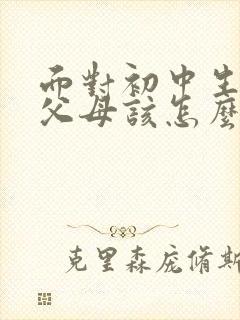 面對初中生
父母該怎麼
克里森庞脩斯